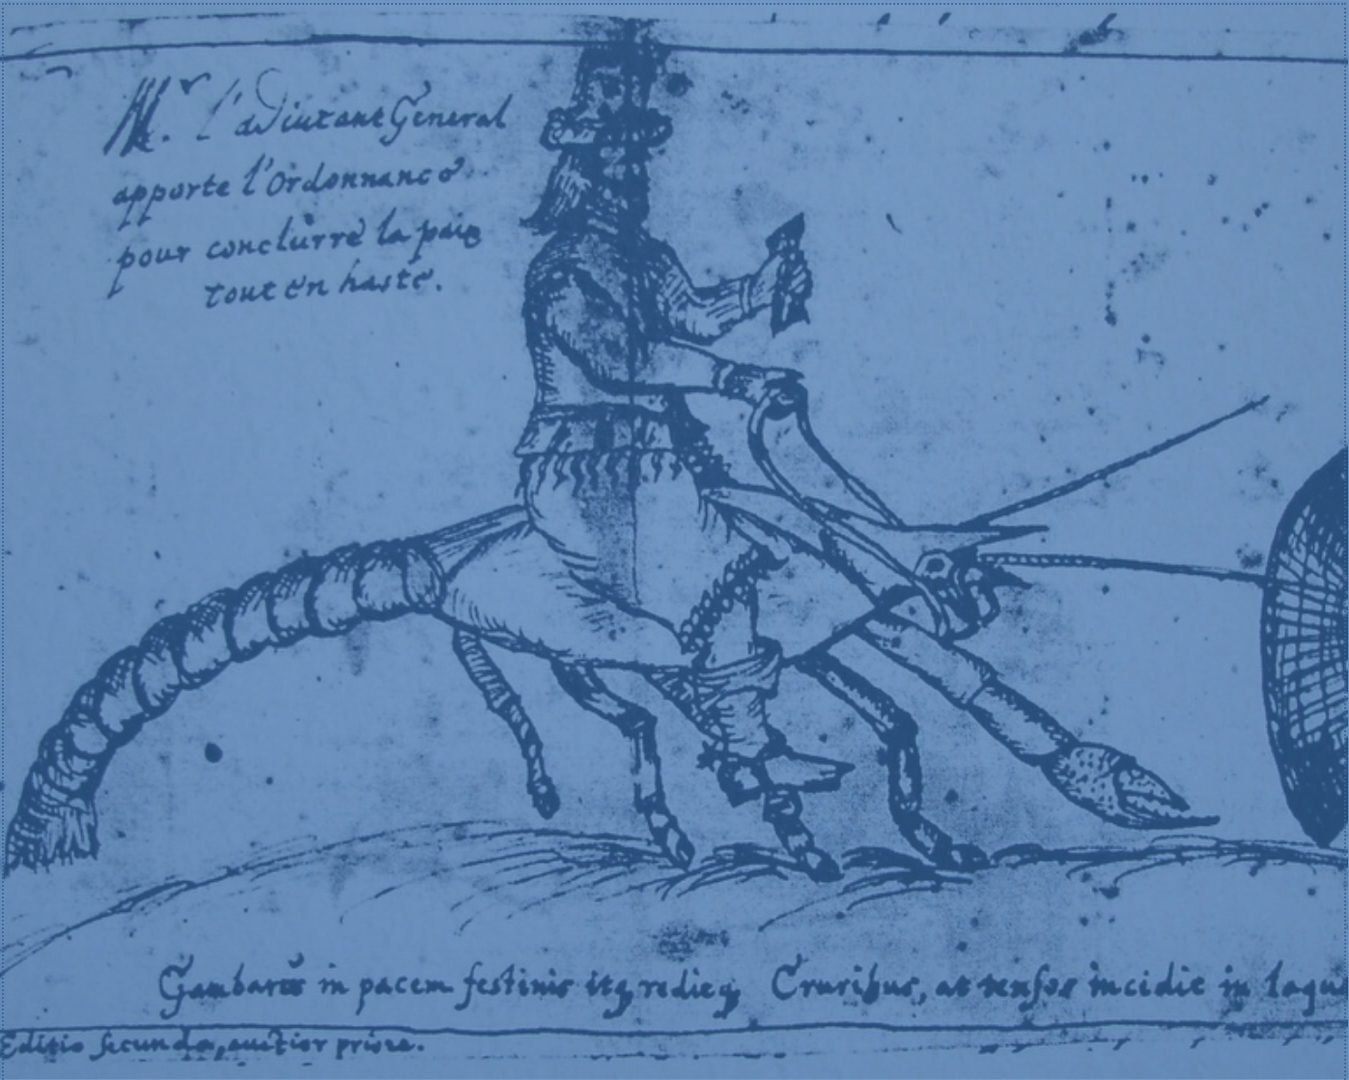 Mr. l'adiutant General
apporte l'Ordonnance
pour conclurre la paix
tout en haste.
Gambarus in pacem festinis itq, redieq, Cruribus, at tensos incidit in laqu
Editio secunda, auctior priore.